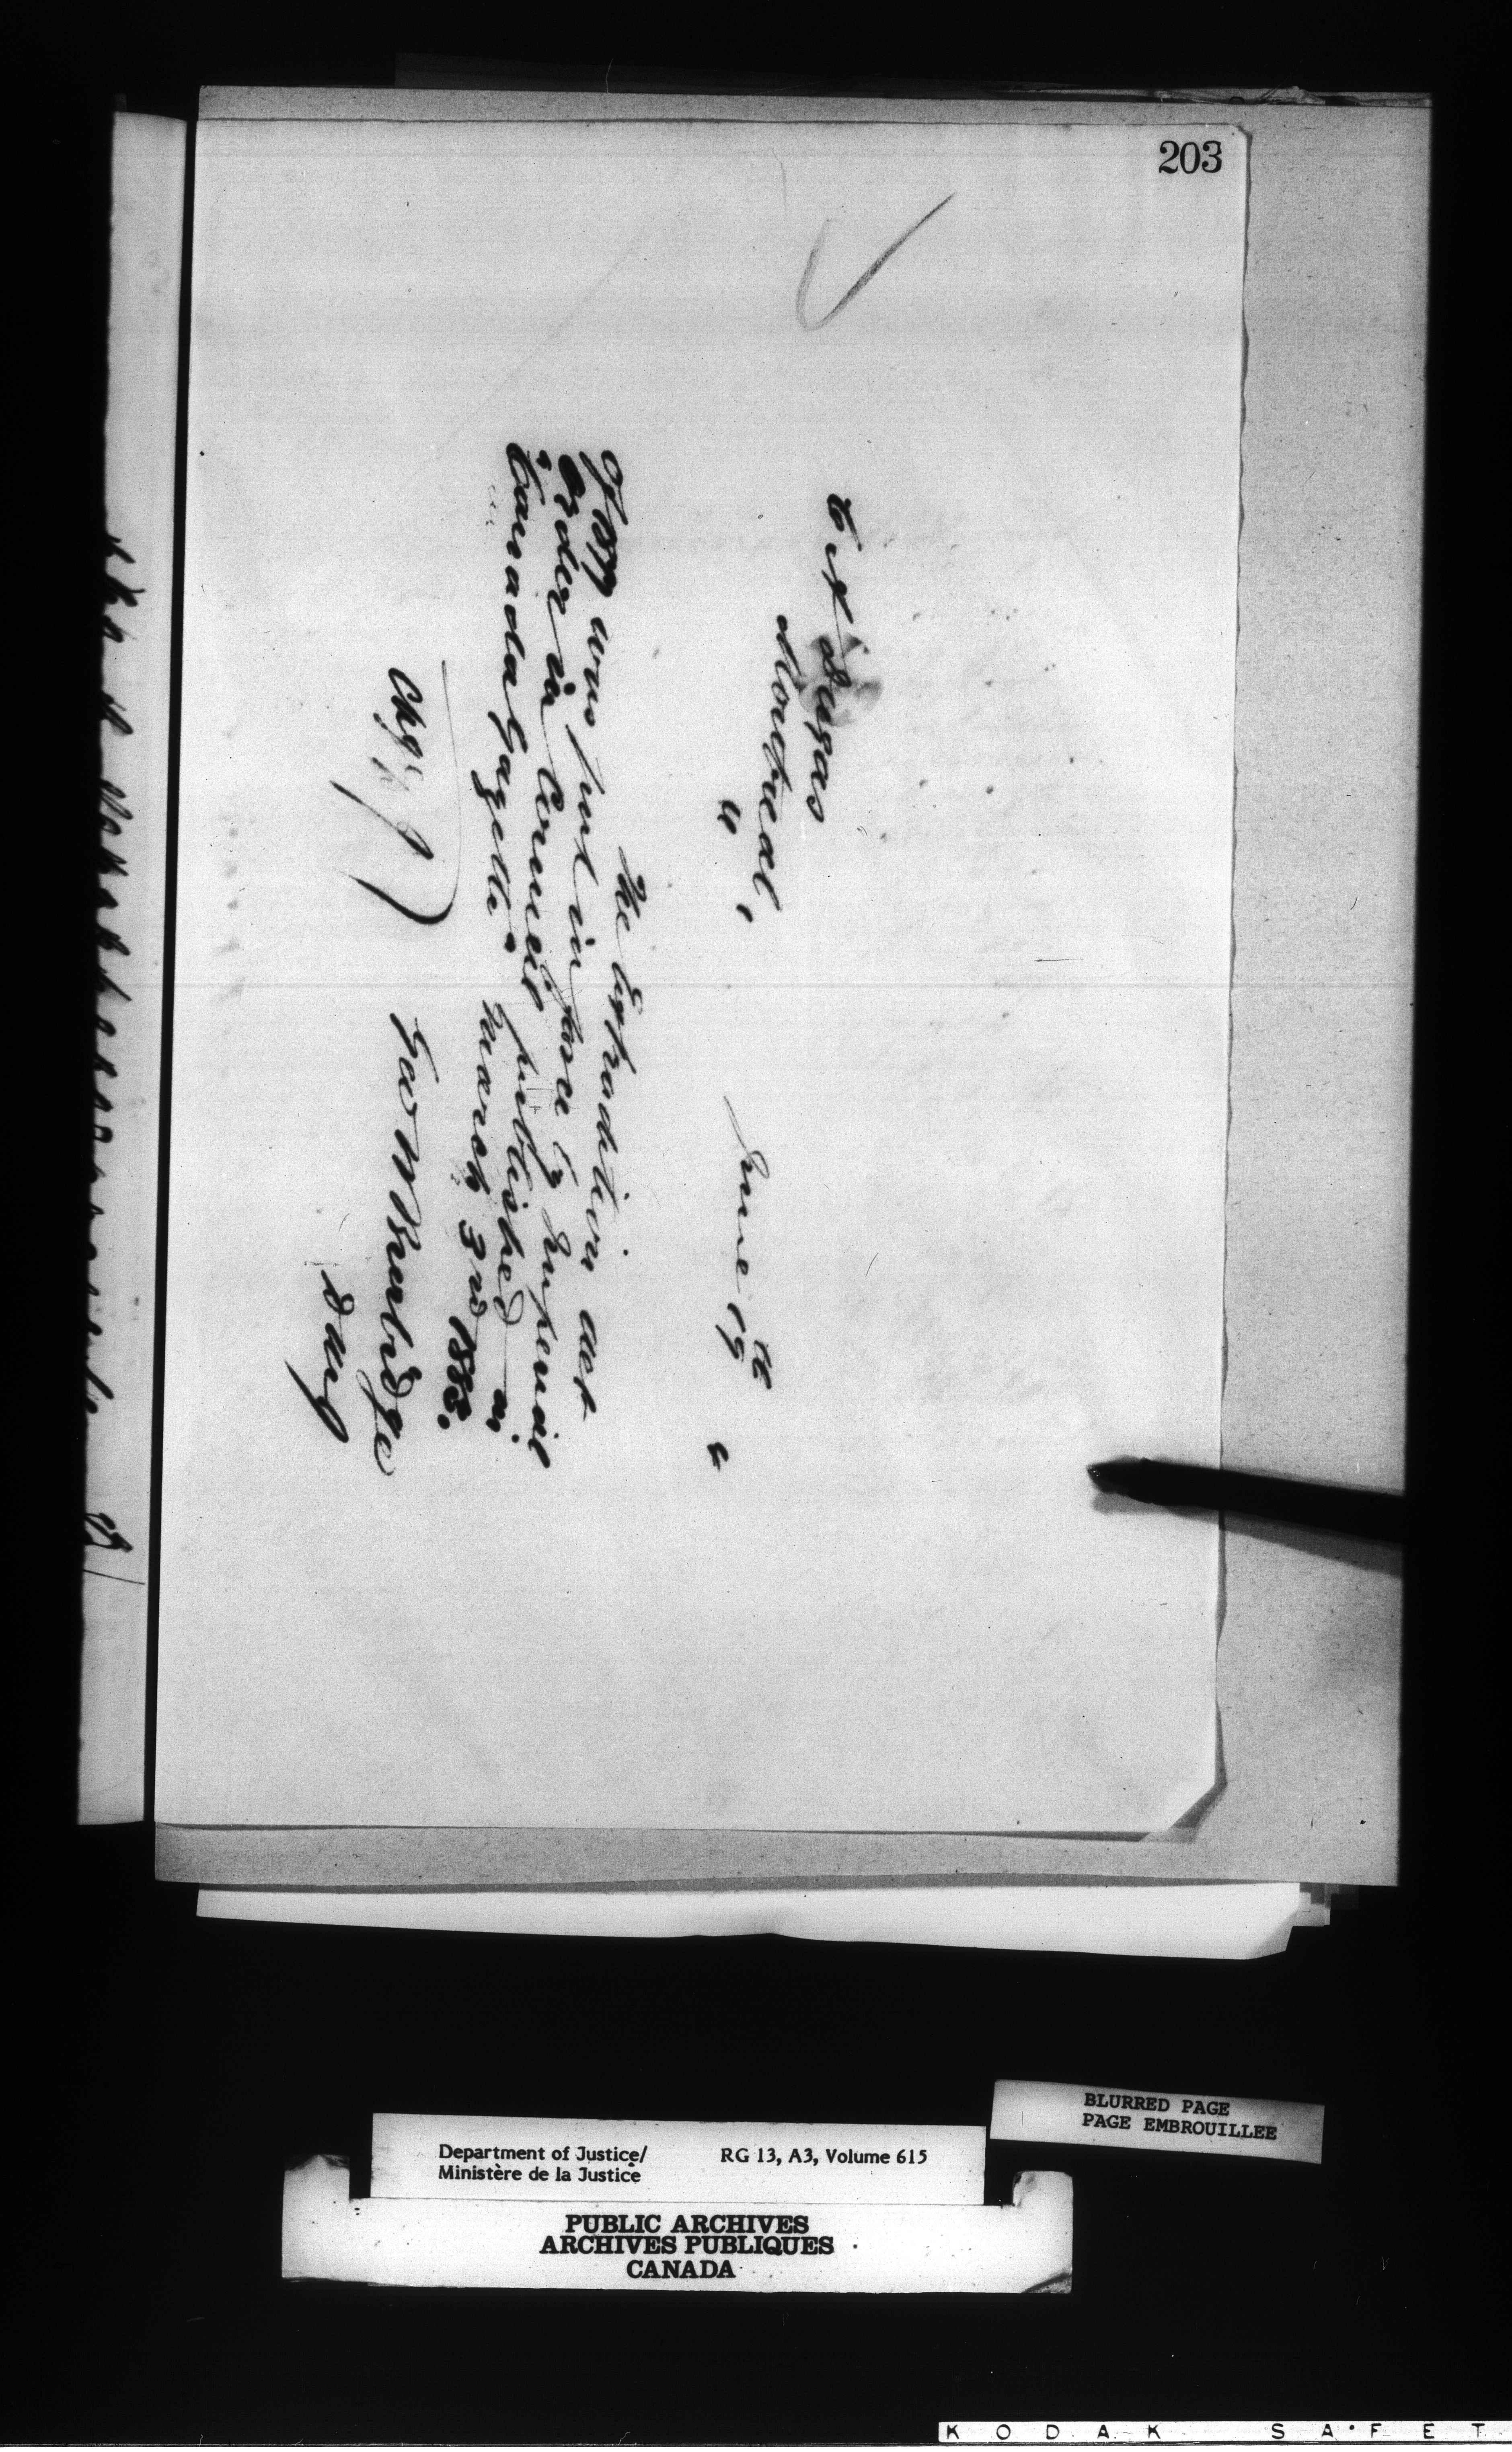 203
June 19th "
C A Dugas
Montreal,
"
The Extradition Act
of 1877 was put in force by Imperial
Order in Council published in
"Canada Gazette" March 3rd 1883.
Geo W Burbidge
DMJ
Chg. J
BLURRED PAGE
PAGE EMBROUILLEE
Department of Justice/
Ministère de la Justice
RG 13, A3, Volume 615
PUBLIC ARCHIVES
ARCHIVES PUBLIQUES
CANADA
KODAK SAFET